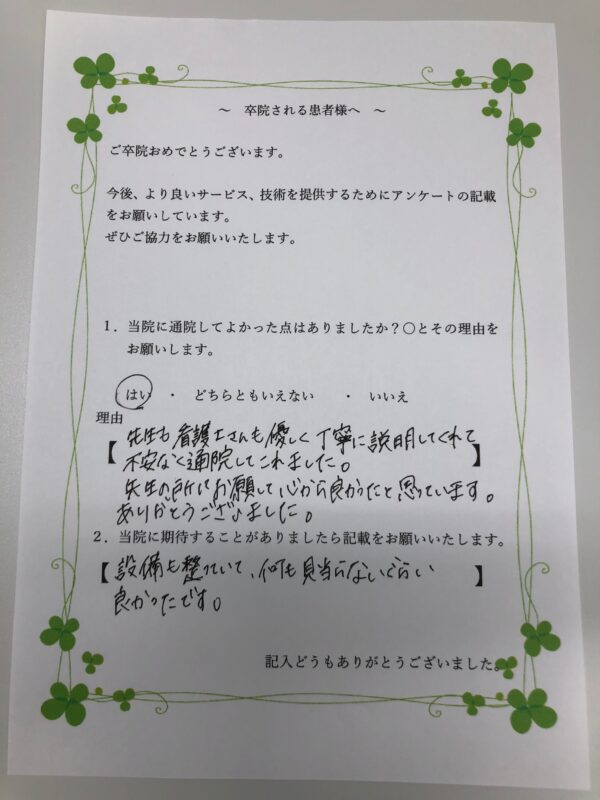 ～ 卒院される患者様へ ～
ご卒院おめでとうございます。
今後、より良いサービス、技術を提供するためにアンケートの記載
をお願いしています。
ぜひご協力をお願いいたします。
1．当院に通院してよかった点はありましたか？○とその理由を
お願いします。
はい ・ どちらともいえない ・ いいえ
理由
【先生も看護士さんも優しく丁寧に説明してくれて
不安なく通院してこれました。】
先生の所にお願して心から良かったと思っています。
ありがとうございました。
2．当院に期待することがありましたら記載をお願いいたします。
【設備も整っていて、何も見当らないぐらい】
良かったです。
記入どうもありがとうございました。